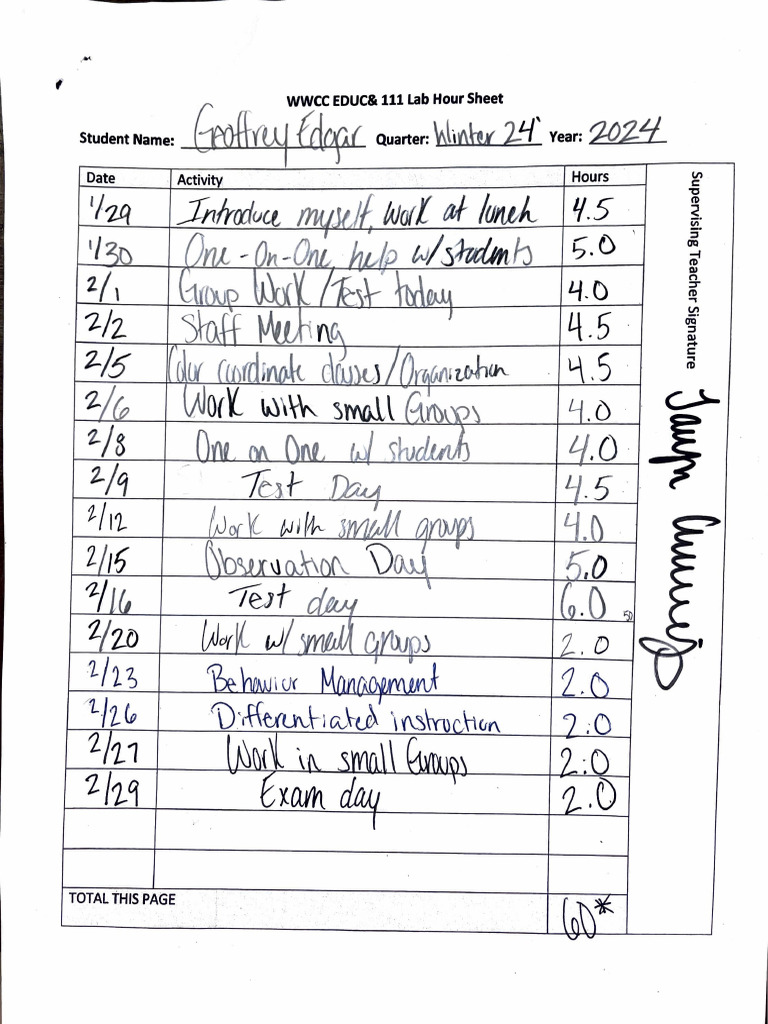 WWCC EDUC& 111 Lab Hour Sheet
Student Name: Geoffrey Edgar Quarter: Winter 24' Year: 2024
Date Activity Hours
1/29 Introduce myself, Work at lunch 4.5
1/30 One-On-One help w/students 5.0
2/1 Group Work/Test today 4.0
2/2 Staff Meeting 4.5
2/5 Color coordinate classes/Organization 4.5
2/6 Work with small Groups 4.0
2/8 One on One w/ students 4.0
2/9 Test Day 4.5
2/12 Work with small groups 4.0
2/15 Observation Day 5.0
2/16 Test day 6.0 50
2/20 Work w/small groups 2.0
2/23 Behavior Management 2.0
2/26 Differentiated instruction 2.0
2/27 Work in small Groups 2.0
2/29 Exam day 2.0
TOTAL THIS PAGE 60*
Supervising Teacher Signature